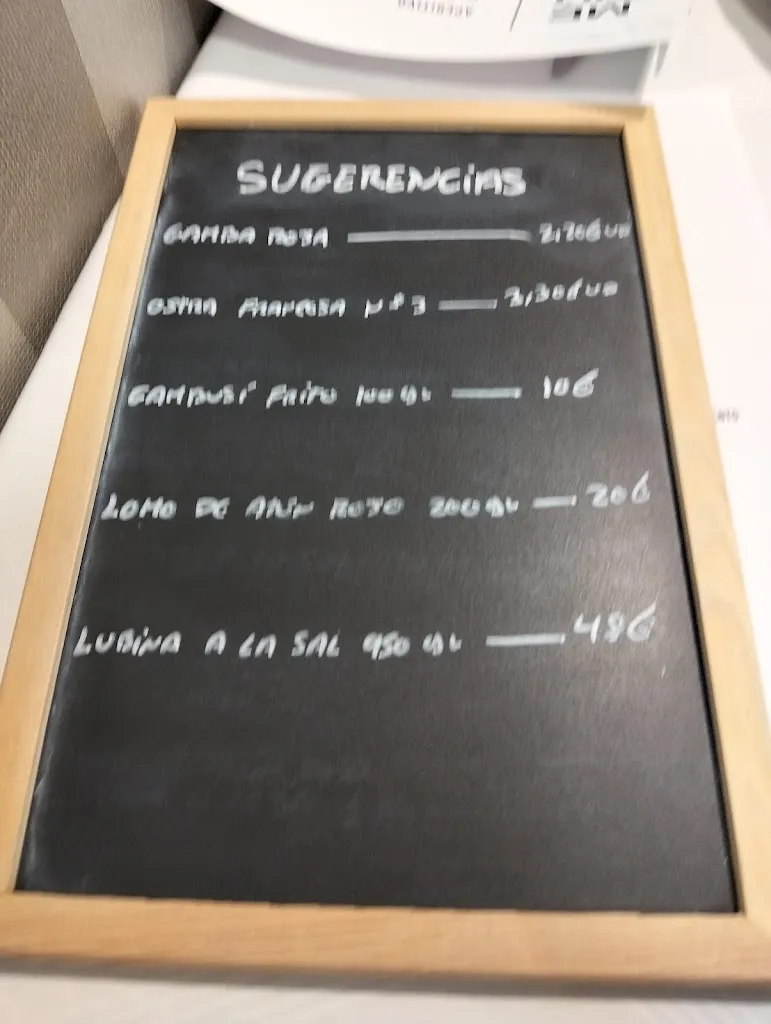 SUGERENCIAS
GAMBA ROJA
OSTRA FRANCESA Nº 3 — 3,30€ UD
GAMBUSÍ FRITO 100 gr — 10€
LOMO DE ATÚN ROJO 200 gr — 20€
LUBINA A LA SAL 950 gr — 48€